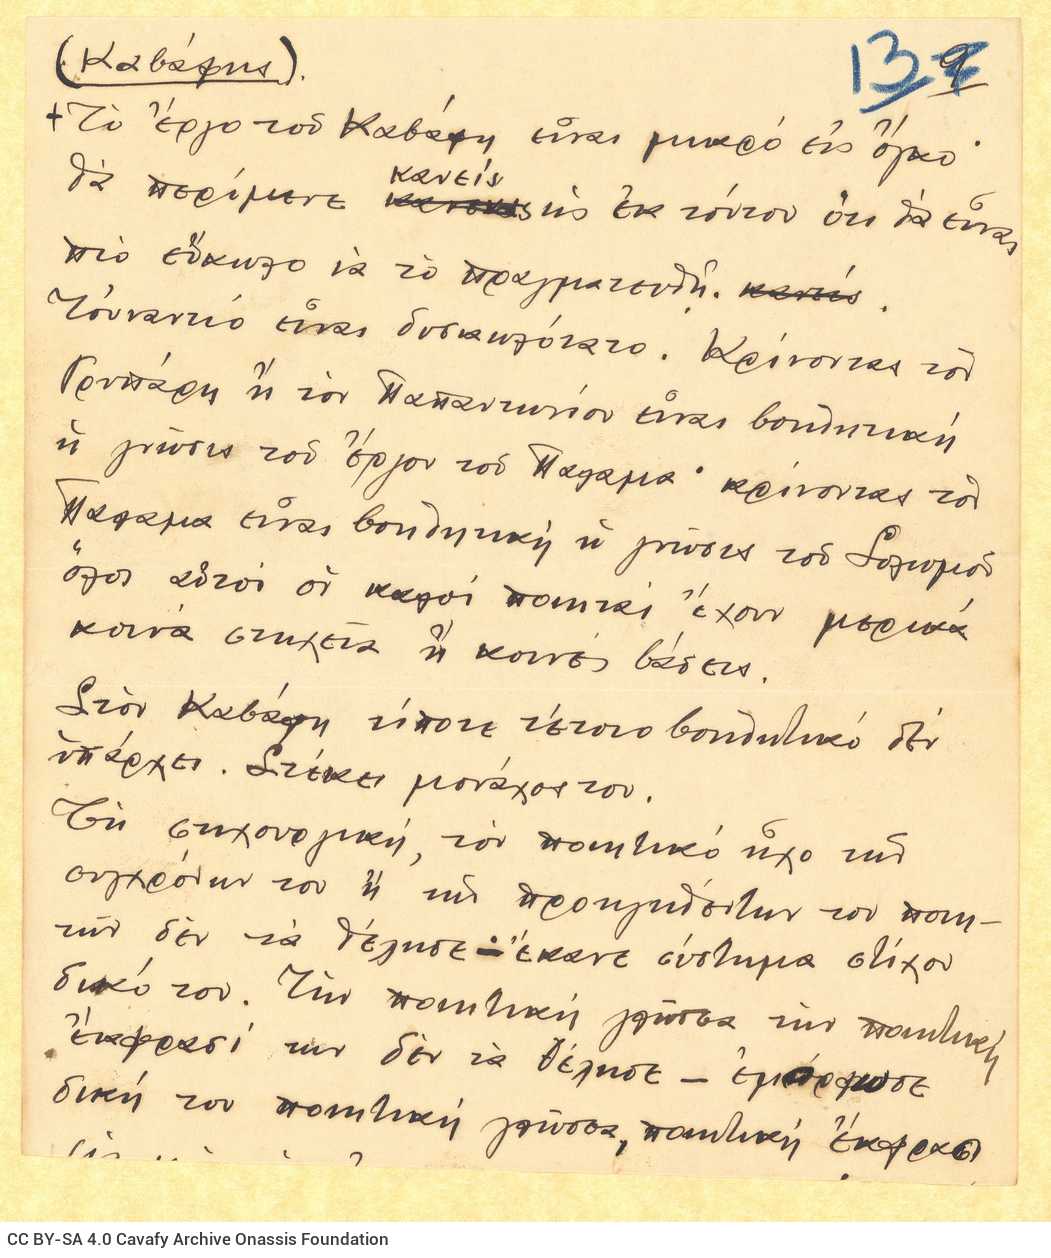 (Καβάφης).
13 9
+ Τὸ ἔργο τοῦ Καβάφη εἶναι μικρό εἰς ὄγκο·
κανείς
θὰ περίμενε ὡς ἐκ τούτου ὅτι θὰ εἶναι
πιὸ εὔκολο νὰ τὸ πραγματευθῇ. κανείς.
Τοὐναντίο εἶναι δυσκολότατο. Κρίνοντας τὸν
Γρυπάρη ἢ τὸν Παπαντωνίου εἶναι βοηθητική
ἡ γνῶσις τοῦ ἔργου τοῦ Παλαμᾶ· κρίνοντας τὸν
Παλαμᾶ εἶναι βοηθητική ἡ γνῶσις τοῦ Σολωμοῦ
ὅλοι αὐτοί οἱ καλοί ποιηταί ἔχουν μερικά
κοινὰ στοιχεῖα ἢ κοινές βάσεις.
Στὸν Καβάφη τίποτε τέτοιο βοηθητικό δέν
ὑπάρχει. Στέκει μονάχος του.
Τὴ στιχουργική, τὸν ποιητικό ἦχο τῶν
συγχρόνων του ἢ τῶν προηγηθέντων του ποιη-
τῶν δὲν τὰ θέλησε – ἔκανε σύστημα στίχου
δικό του. Τὴν ποιητική γλῶσσα τὴν ποιητική
ἔκφρασί των δὲν τὰ θέλησε – ἐμόρφωσε
δική του ποιητική γλῶσσα, ποιητική ἔκφρασι
CC BY-SA 4.0 Cavafy Archive Onassis Foundation